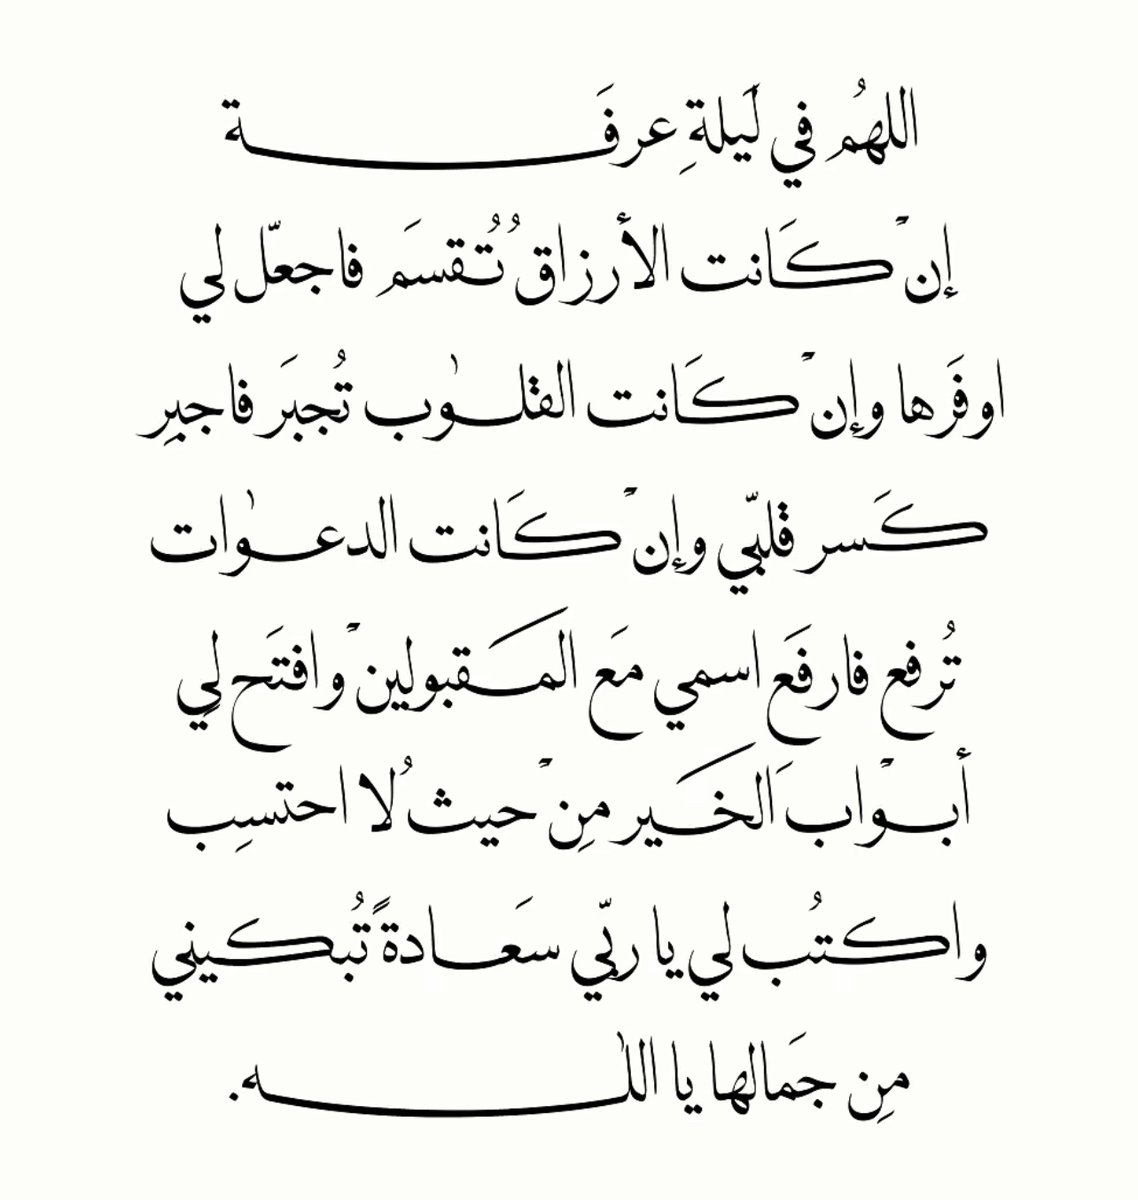 اللهُم في لَيلةِ عرفَـــــــــة
إنْ كَانت الأرزاقُ تُقسَم فاجعّل لي
اوفَرها وإنْ كَانت القلـوٰب تُجبَر فاجبِر
كَسر قلبّي وإنْ كَانت الدعـوٰات
تُرفع فارفَع اسمي مَع المَـقبولينْ وافتَح لي
أبـوْاب الَخَـير مِنْ حيث لُا احتسِب
واكتُب لي يا ربّي سعَـادةً تُبكـيني
مِن جمَالها يا اللـٰـــــــــه.